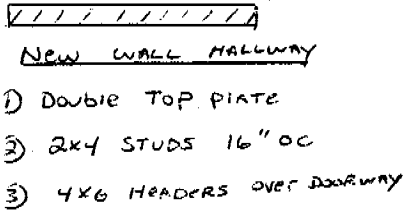 New WALL HALLWAY
1) Double Top Plate
2) 2x4 STUDS 16" OC
3) 4x6 HEADERS over DOORWAY